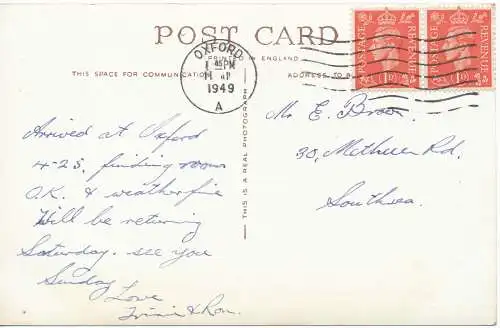 POST CARD
PRINTED IN ENGLAND
THIS SPACE FOR COMMUNICATION
ADDRESS TO B
OXFORD
PM
1949
A
POSTAGE
REVENUE
1D
POSTAGE
REVENUE
1D
THIS IS A REAL PHOTOGRAPH
Arrived at Oxford
4-25, finding room
O.K. & weather fine
Will be returning
Saturday. see you
Sunday
Love
& Ron.
Mr E.
30, Methuen Rd,
Southsea.